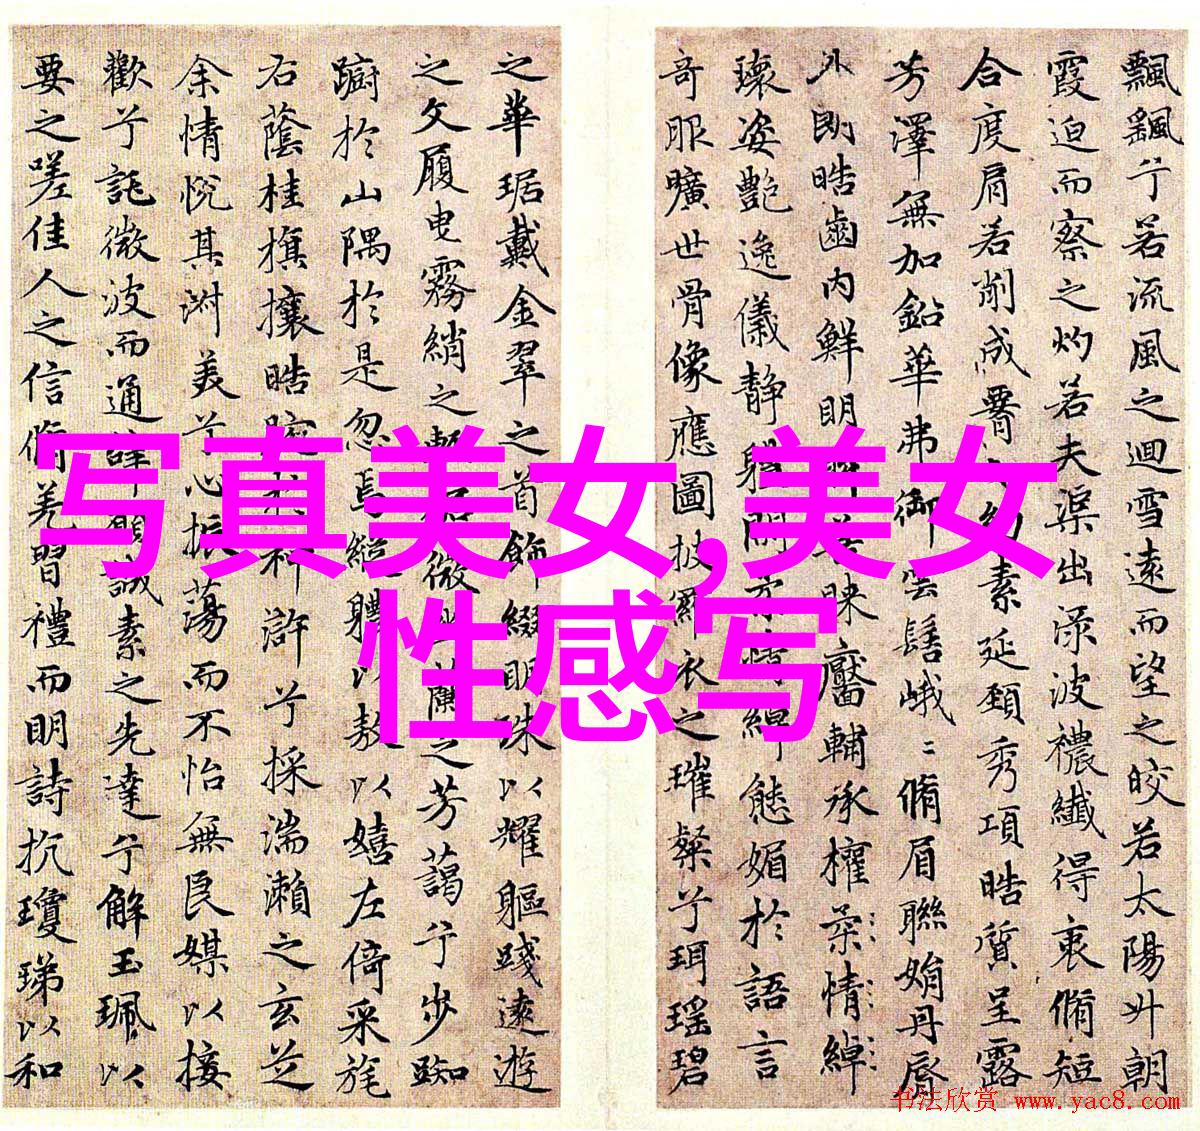 飄飖兮若流風之迴雪遠而望之皎若太陽升朝
霞迫而察之灼若夫渠出淥波襛纖得衷脩短
合度肩若削成署 約素延頸秀項皓質呈露
芳澤無加鉛華弗御雲髻峨〻脩眉聯娟丹脣
外朗皓齒内鮮明 睞靨輔承權
瓌姿艷逸儀静 綽態媚於語言
奇服曠世骨像應圖披 衣之璀粲兮珥瑶碧
之華琚戴金翠之首飾綴明珠以耀軀踐遠遊
之文履曳霧綃之 微 之芳藹兮步踟
蹰於山隅於是忽焉縱體以遨以嬉左倚采旄
右蔭桂旗攘皓 滸兮採湍瀨之玄芝
余情悅其淑美兮心振蕩而不怡無良媒以接
歡兮託微波而通 誠素之先達兮解玉珮以
要之嗟佳人之信脩羌習禮而明詩抗瓊珶以和
写真美女,美女
性感写
书法欣赏 www.yac8.com